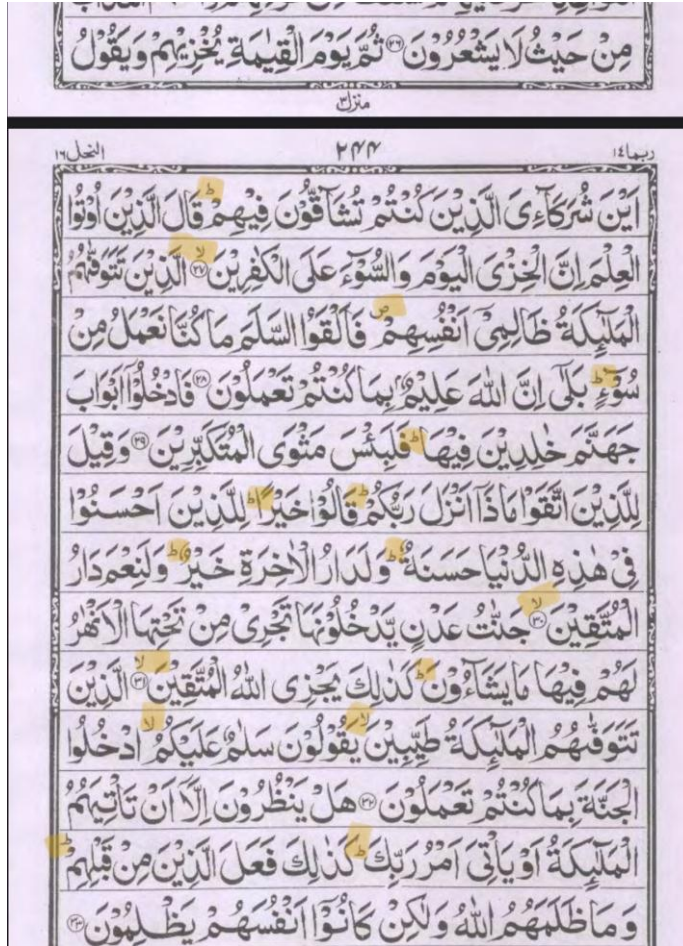 مِنْ حَيْثُ لَا يَشْعُرُوْنَ ۲۶ ثُمَّ يَوْمَ الْقِيٰمَةِ يُخْزِيْهِمْ وَيَقُوْلُ
منزل ۳
ربما ۱۴
۲۴۴
النحل ۱۶
اَيْنَ شُرَكَآءِيَ الَّذِيْنَ كُنْتُمْ تُشَآقُّوْنَ فِيْهِمْ ؕ قَالَ الَّذِيْنَ اُوْتُوا
الْعِلْمَ اِنَّ الْخِزْيَ الْيَوْمَ وَالسُّوْٓءَ عَلَى الْكٰفِرِيْنَ ۲۷ ۙ الَّذِيْنَ تَتَوَفّٰىهُمُ
الْمَلٰٓئِكَةُ ظَالِمِيْٓ اَنْفُسِهِمْ ۪ فَاَلْقَوُا السَّلَمَ مَا كُنَّا نَعْمَلُ مِنْ
سُوْٓءٍ ؕ بَلٰٓى اِنَّ اللّٰهَ عَلِيْمٌۢ بِمَا كُنْتُمْ تَعْمَلُوْنَ ۲۸ فَادْخُلُوْٓا اَبْوَابَ
جَهَنَّمَ خٰلِدِيْنَ فِيْهَا ؕ فَلَبِئْسَ مَثْوَى الْمُتَكَبِّرِيْنَ ۲۹ وَقِيْلَ
لِلَّذِيْنَ اتَّقَوْا مَاذَآ اَنْزَلَ رَبُّكُمْ ؕ قَالُوْا خَيْرًا ؕ لِلَّذِيْنَ اَحْسَنُوْا
فِيْ هٰذِهِ الدُّنْيَا حَسَنَةٌ ؕ وَلَدَارُ الْاٰخِرَةِ خَيْرٌ ؕ وَلَنِعْمَ دَارُ
الْمُتَّقِيْنَ ۳۰ ۙ جَنّٰتُ عَدْنٍ يَّدْخُلُوْنَهَا تَجْرِيْ مِنْ تَحْتِهَا الْاَنْهٰرُ
لَهُمْ فِيْهَا مَا يَشَآءُوْنَ ؕ كَذٰلِكَ يَجْزِي اللّٰهُ الْمُتَّقِيْنَ ۳۱ ۙ الَّذِيْنَ
تَتَوَفّٰىهُمُ الْمَلٰٓئِكَةُ طَيِّبِيْنَ ۙ يَقُوْلُوْنَ سَلٰمٌ عَلَيْكُمُ ۙ ادْخُلُوا
الْجَنَّةَ بِمَا كُنْتُمْ تَعْمَلُوْنَ ۳۲ هَلْ يَنْظُرُوْنَ اِلَّآ اَنْ تَاْتِيَهُمُ
الْمَلٰٓئِكَةُ اَوْ يَاْتِيَ اَمْرُ رَبِّكَ ؕ كَذٰلِكَ فَعَلَ الَّذِيْنَ مِنْ قَبْلِهِمْ ؕ
وَمَا ظَلَمَهُمُ اللّٰهُ وَلٰكِنْ كَانُوْٓا اَنْفُسَهُمْ يَظْلِمُوْنَ ۳۳